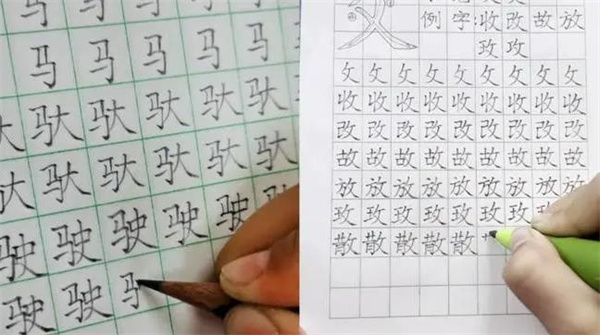 马 马 马 马 马
驮 驮 驮 驮 驮
驮 驮 驮 驮 驮 驮
驶 驶 驶 驶 驶 驶
驶 驶
例字:收改故放
玫攻
攵攵攵攵攵攵攵攵攵
收收收收收收收收收
改改改改改改改改改
故故故故故故故故故
放放放放放放放放放
玫玫玫玫玫玫玫
散散散散散